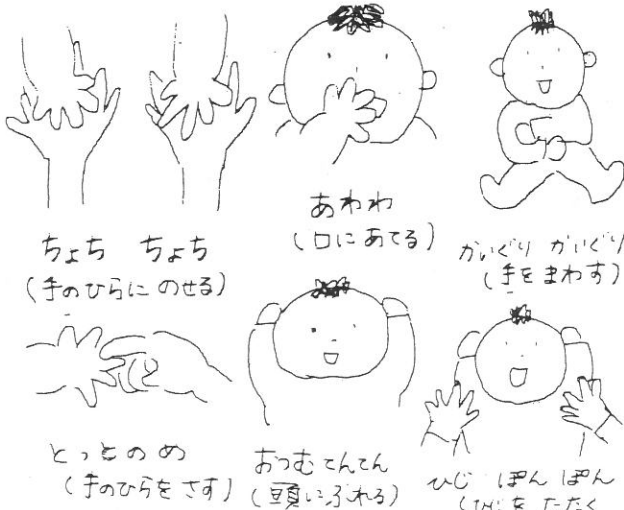 ちょち ちょち
(手のひらに のせる)
あわわ
(口にあてる)
かいぐり かいぐり
(手をまわす)
とっとのめ
(手のひらをさす)
おつむてんてん
(頭にふれる)
ひじ ぽん ぽん
(ひじを たたく